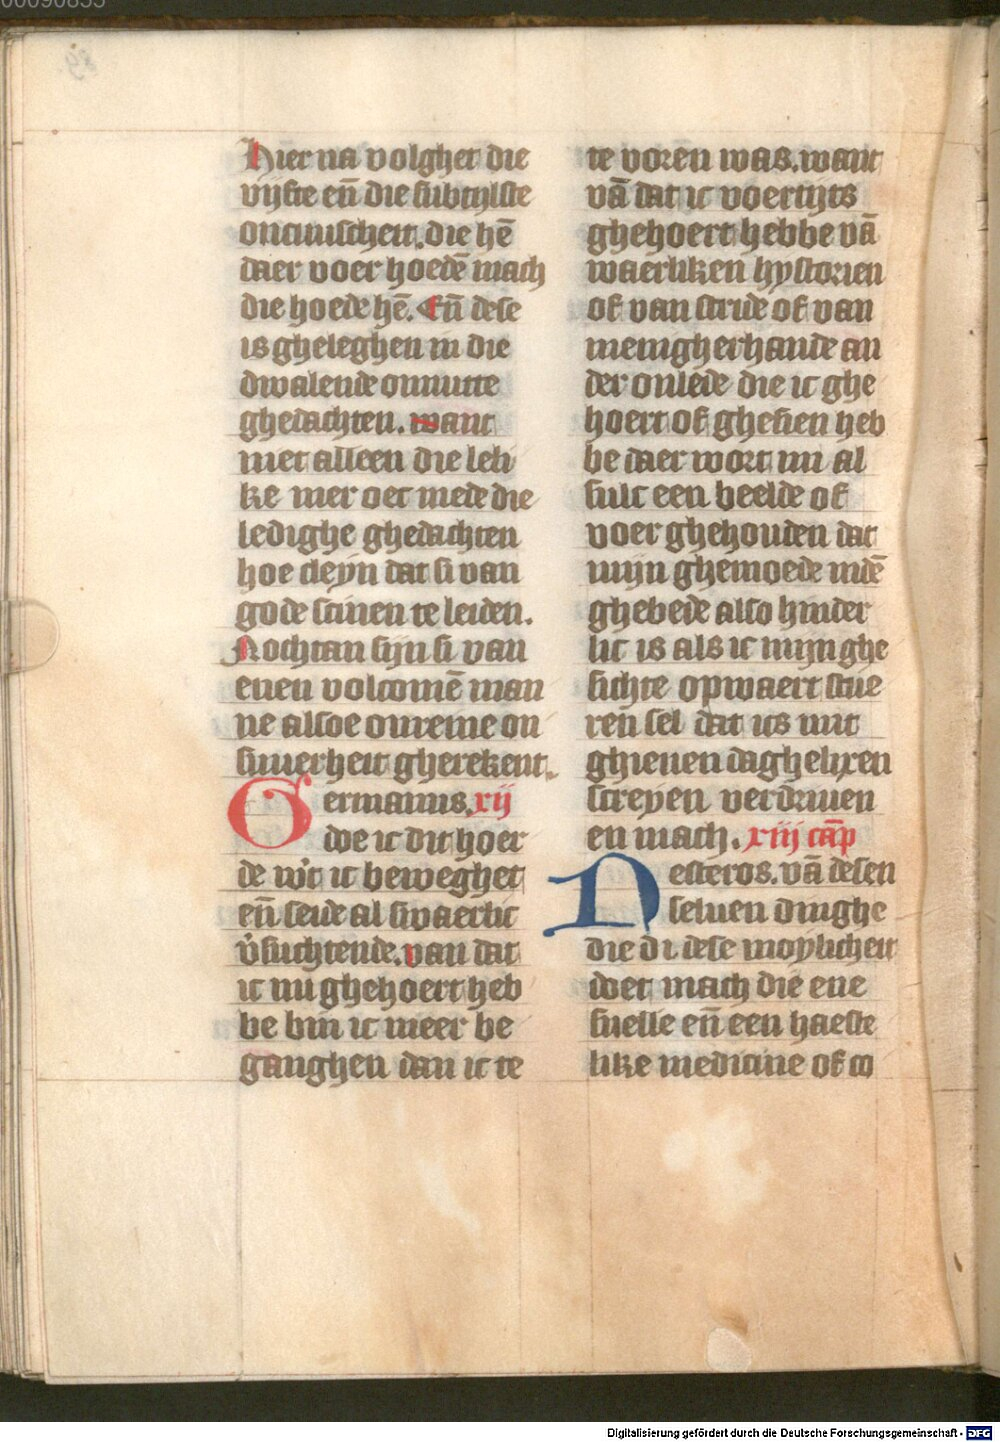 00090855
Hier na volghet die
vijfte eñ die subtijlste
oncuuscheit. die hē
daer voer hoedē mach
die hoede hē. Eñ dese
is gheleghen in die
dwalende onnutte
ghedachten. want
niet alleen die leli
ke mer oec mede die
ledighe ghedachten
hoe cleyn dat si van
gode scinen te leiden.
Nochtan sijn si van
enen volcomē man
ne alsoe onreine on
suuerheit gherekent.
Germanus. xij
Doe ic dit hoer
de wt ic beweghet
eñ seide al swaerlic
v̓suchtende. van dat
ic nu ghehoert heb
be bin ic meer be
ganghen dan ic te
te voren was. want
vā dat ic voertijts
ghehoert hebbe vā
waerliken hystorien
of van stride of van
menigherhande an
der onlede die ic ghe
hoert of ghesien heb
be daer wort mi al
sulc een beelde of
voer ghehouden dat
mijn ghemoede indē
ghebede also hinder
lic is als ic mijn ghe
sichte opwaert stue
ren sel dat ics mit
ghienen daghelixen
screyen verdriuen
en mach. xiij cāp
Nesteros. vā desen
seluen dinghe
die di dese moylicheit
doet mach die ene
snelle eñ een haeste
like medicine of co
Digitalisierung gefördert durch die Deutsche Forschungsgemeinschaft - DFG